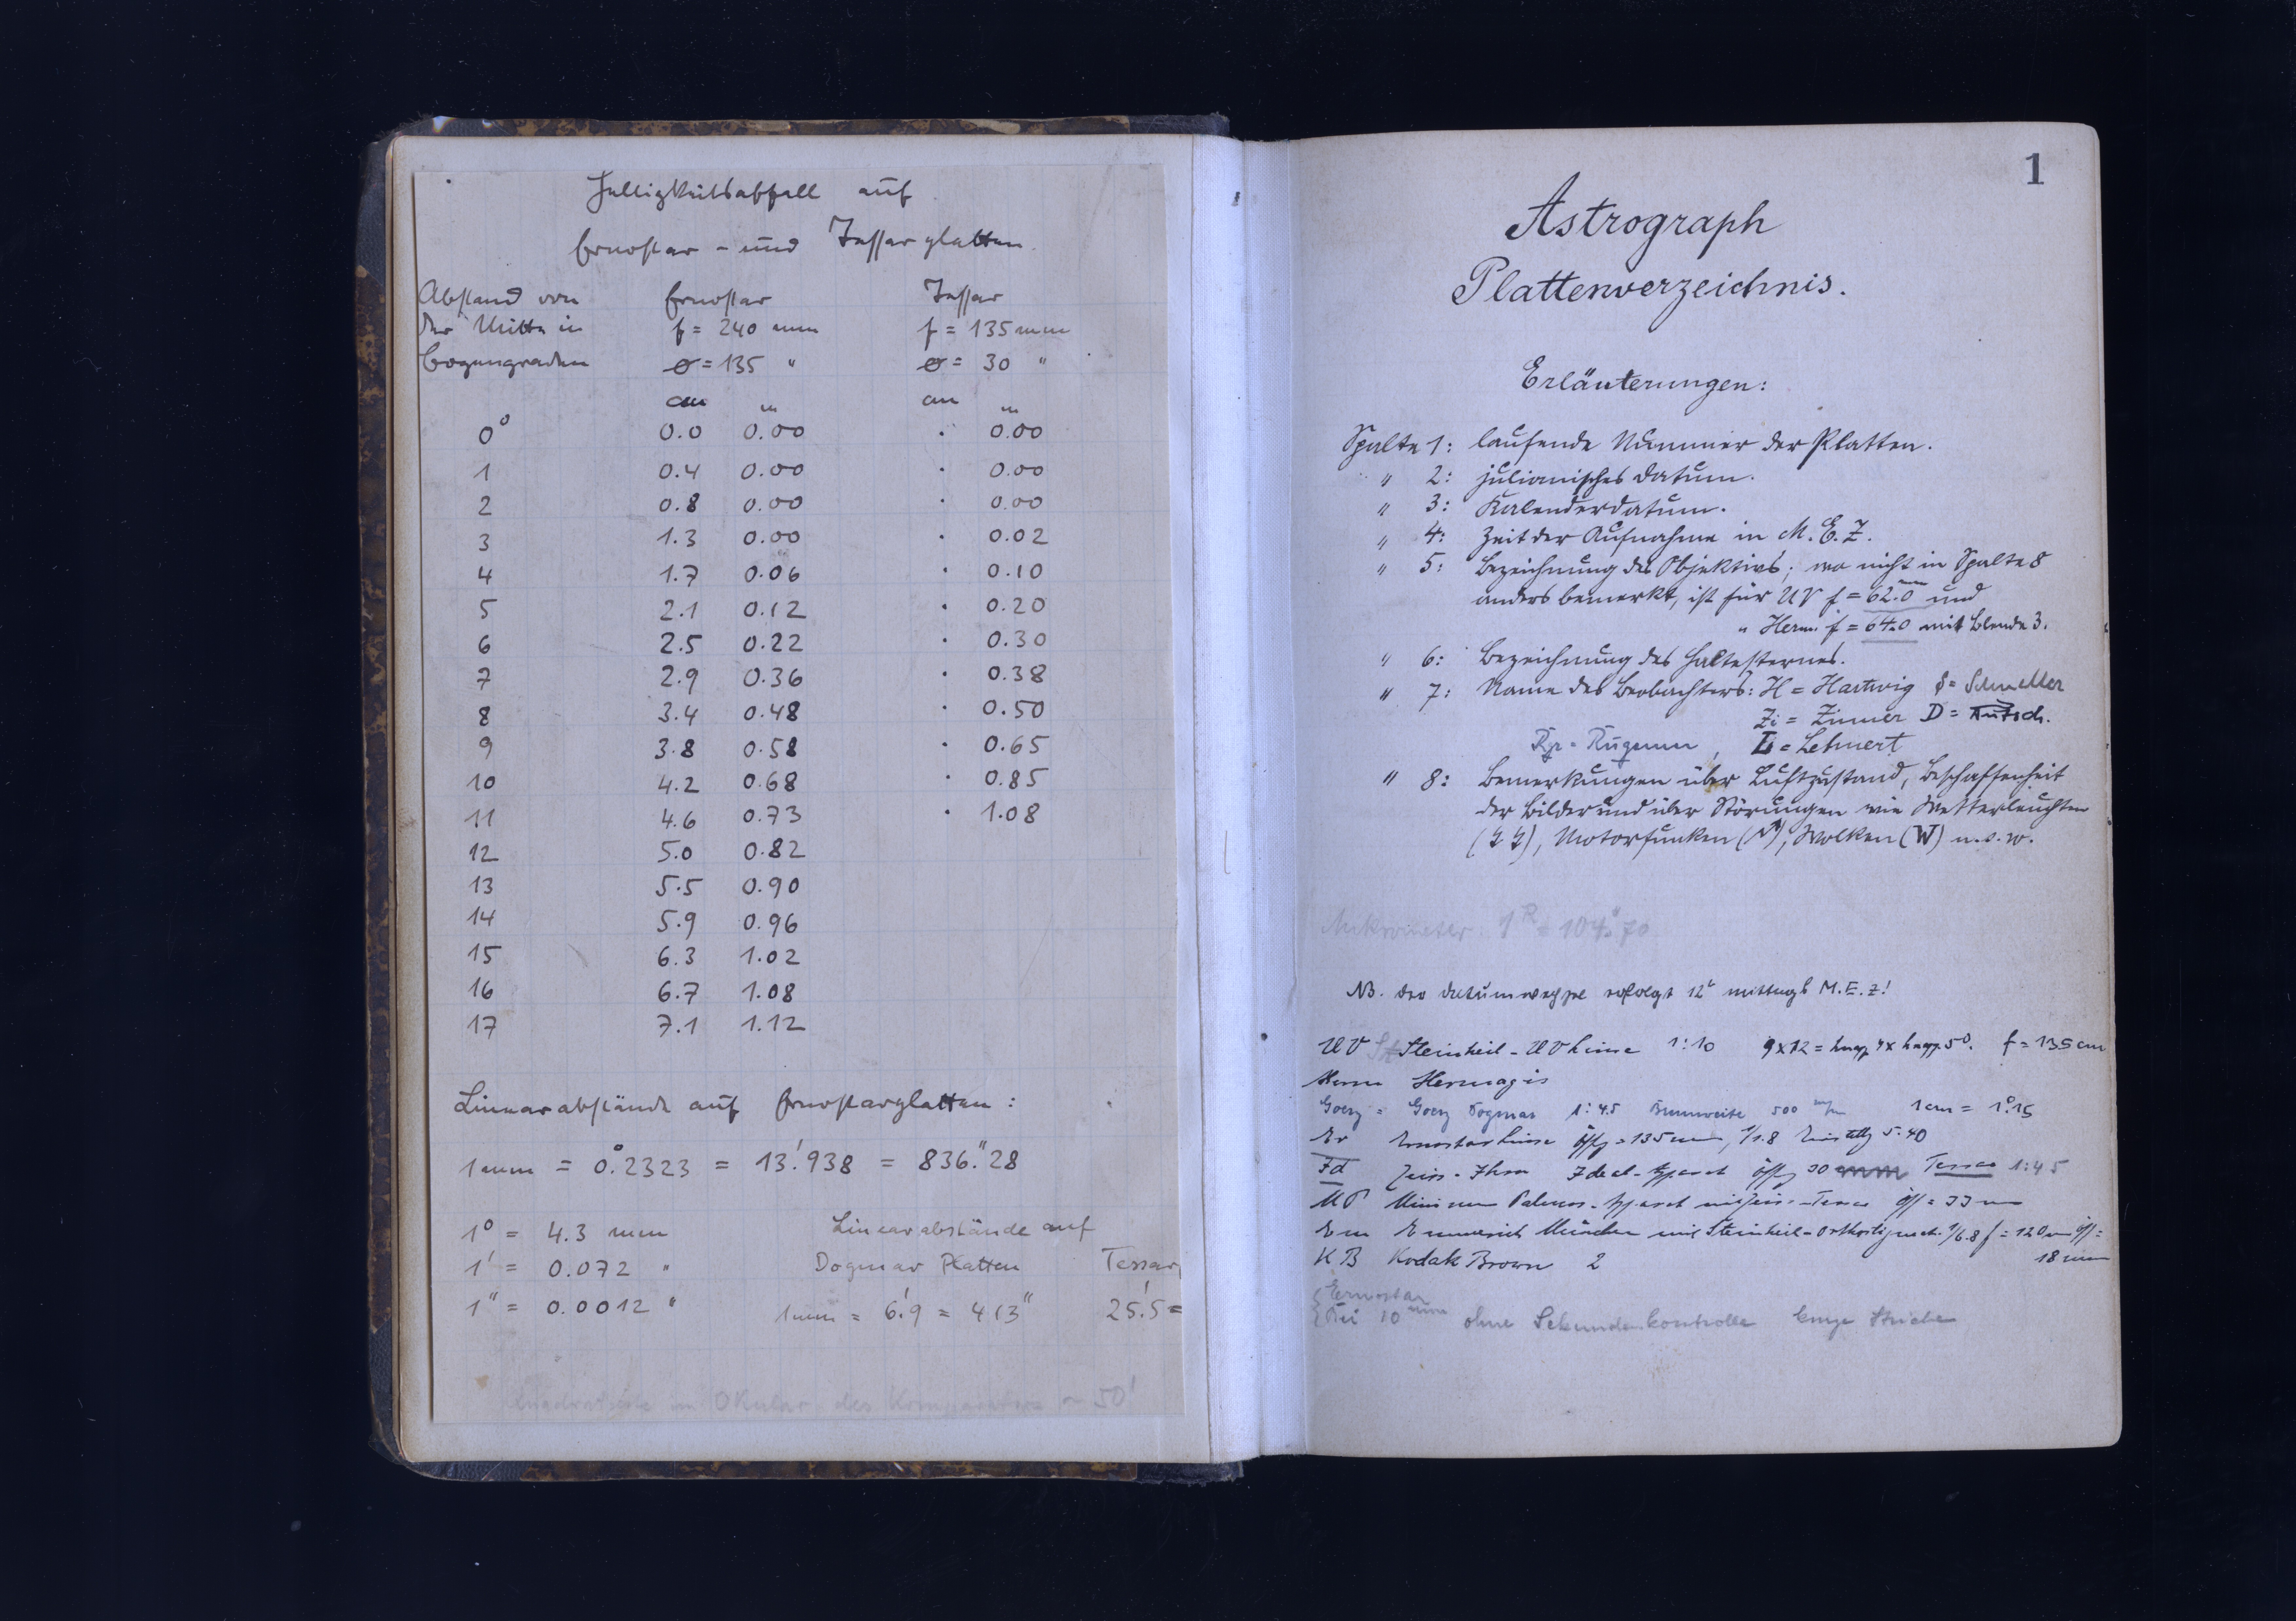 Helligkeitsabfall auf
Ernostar- und Tessarplatten.
Abstand von Ernostar Tessar
der Mitte in f = 240 mm f = 135 mm
Bogengraden ⌀ = 135 " ⌀ = 30 "
cm m cm m
0° 0.0 0.00 · 0.00
1 0.4 0.00 · 0.00
2 0.8 0.00 · 0.00
3 1.3 0.00 · 0.02
4 1.7 0.06 · 0.10
5 2.1 0.12 · 0.20
6 2.5 0.22 · 0.30
7 2.9 0.36 · 0.38
8 3.4 0.48 · 0.50
9 3.8 0.58 · 0.65
10 4.2 0.68 · 0.85
11 4.6 0.73 · 1.08
12 5.0 0.82
13 5.5 0.90
14 5.9 0.96
15 6.3 1.02
16 6.7 1.08
17 7.1 1.12
Linearabstände auf Ernostarplatten:
1 mm = 0°.2323 = 13'.938 = 836".28
1° = 4.3 mm
1' = 0.072 "
1" = 0.0012 "
Linearabstände auf
Dogmar Platten Tessar
1 mm = 6'.9 = 413" 25'.5 =
im Okular des Komparators ~ 50'
1
Astrograph
Plattenverzeichnis.
Erläuterungen:
Spalte 1: laufende Nummer der Platten.
" 2: julianisches Datum.
" 3: Kalenderdatum.
" 4: Zeit der Aufnahme in M.E.Z.
" 5: Bezeichnung des Objektivs; wo nicht in Spalte 8
anders bemerkt, ist für UV f = 62.0 mm und
" Herm. f = 64.0 mit Blende 3.
" 6: Bezeichnung des Haltesternes.
" 7: Name des Beobachters: H = Hartwig S = Schneller
Zi = Zinner D =
= L = Lehnert
" 8: Bemerkungen über Luftzustand, Beschaffenheit
der Bilder und über Störungen wie Wetterleuchten
Motorfunken Wolken (W) u.s.w.
Mikrometer 1R = 104".70
NB. Der Datumwechsel erfolgt 12h mittags M.E.Z!
UV Steinheil-UV Linse 1:10 9x12 = knapp 4x knapp 5°. f = 135 cm
Herm Hermagis
Goerz = Goerz Dogmar 1:4.5 Brennweite 500 m/m 1 cm = 1°.15
Er Ernostar Linse Öffg = 135 mm, 1/1.8 Einstellg 5.40
Id Zeiss-Ikon Ideal-Apparat Öffg 30 mm Tessar 1:4.5
MP Minimum Palmos-Apparat mit Zeiss-Tessar Öff = 33 mm
Em Emmerich München mit Steinheil-Orthostigmat 1/6.8 f = 120 mm Öff =
18 mm
KB Kodak Brown 2
Ernostar
Bei 10 mm ohne Sekundenkontrolle lange Striche